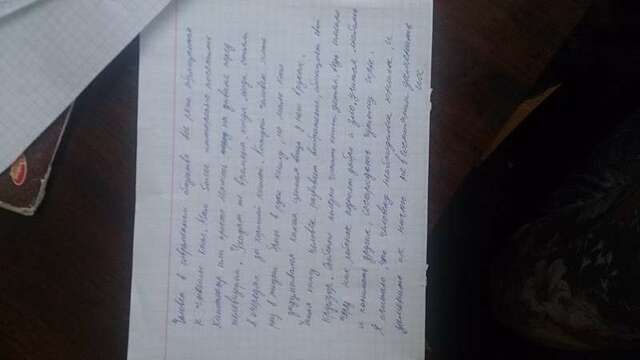 Человек в современном обществе все реже обращается
к чтению книг. Нам более интересно посетить
кинотеатр или просто лежать на диване перед
телевизором. Уходят те времена, когда люди стояли
в очередях за хорошей книгой. Каждый человек хоть
раз в жизни брал в руки книгу, но мало кто
задумывался какая ценная вещь у них в руках.
Читая книгу человек развивает воображение, обогащает свой
кругозор. Особенно полезно читать книги детям, ведь именно
через них ребенок познает добро и зло, учится любить
и понимать других, сострадать чужому горю.
Я считаю, что человеку необходима книга и
заменить их ничто не в состоянии заменить
их.